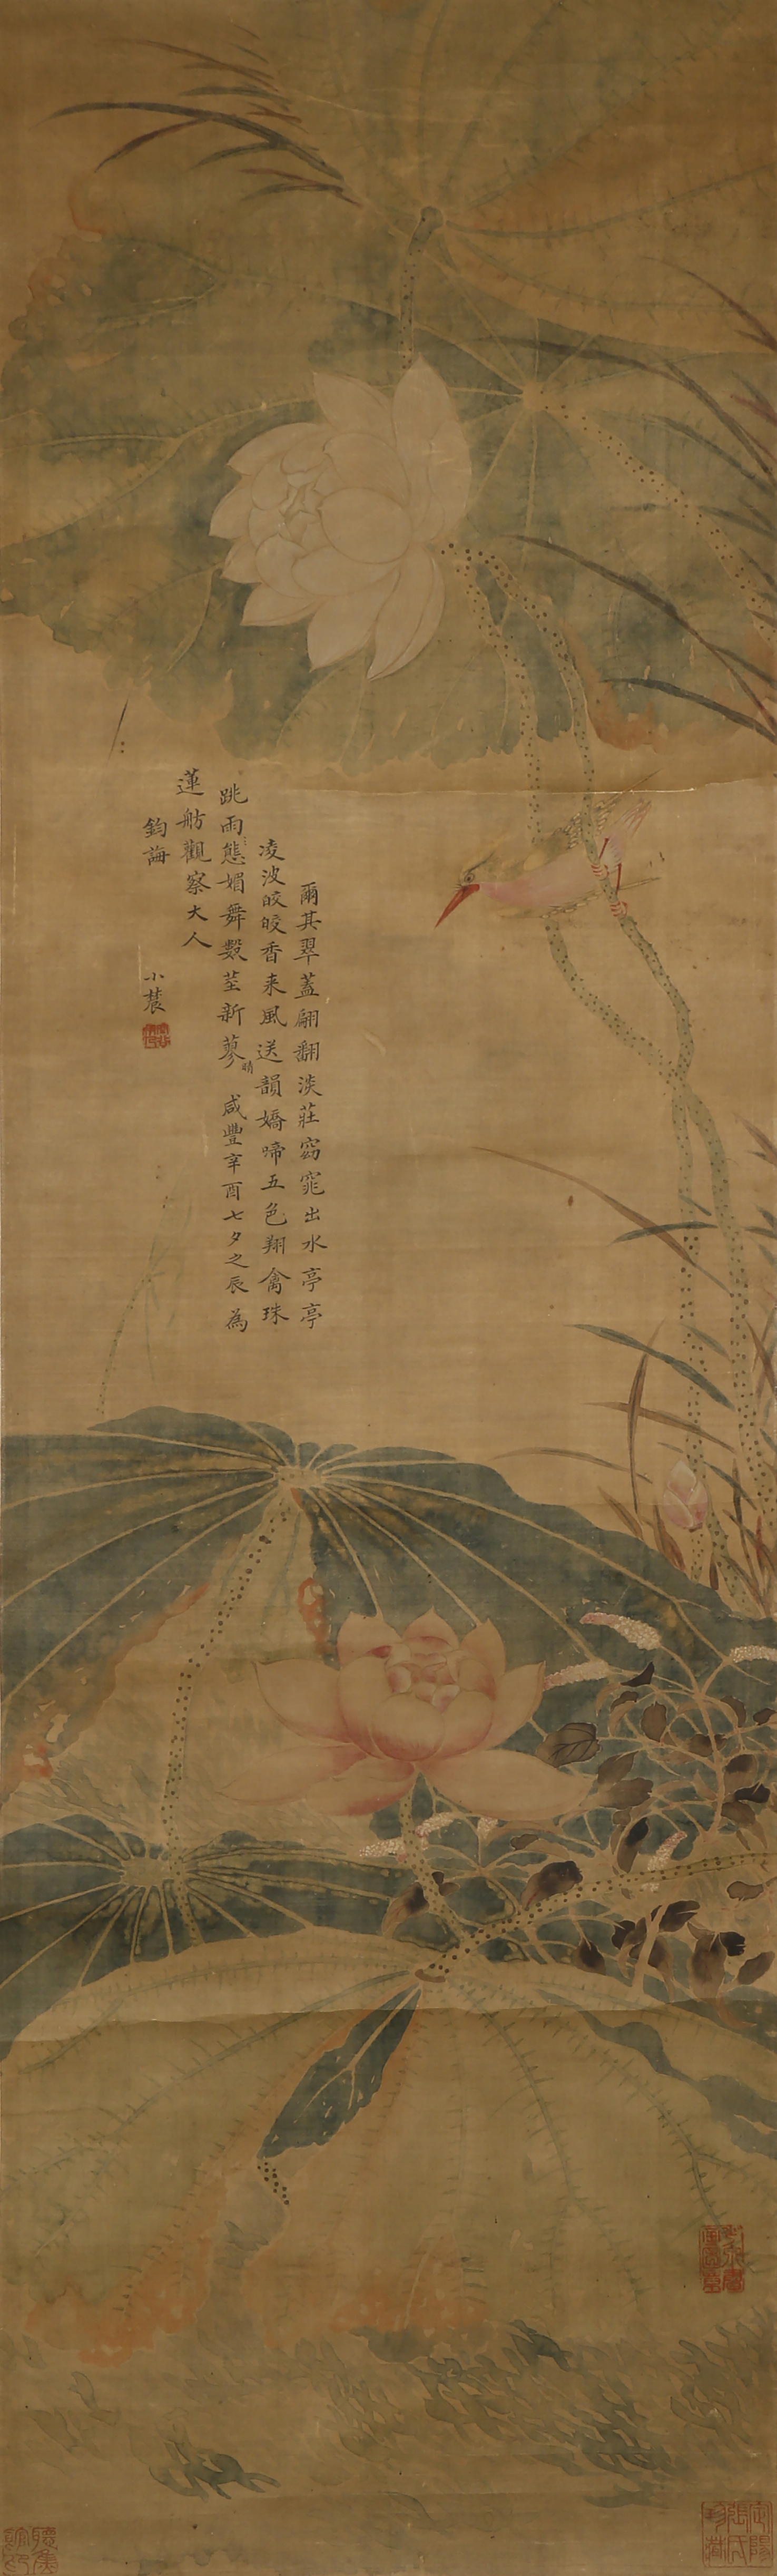 爾其翠蓋翩翻淡莊窈窕出水亭亭
凌波皎皎香来風送韻嬌啼五色翔禽珠
跳雨態媚舞數莖新蓼晴 咸豐辛酉七夕之辰為
蓮舫觀察大人
鈞誨 小蓑